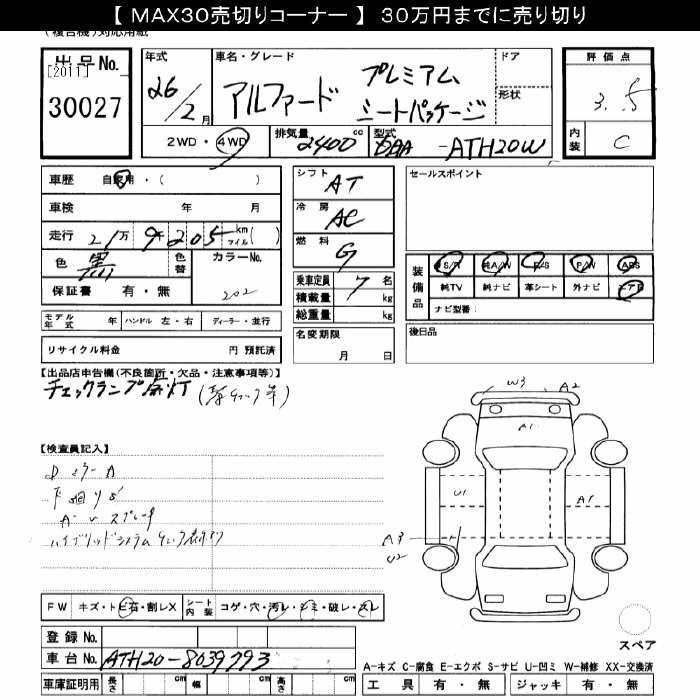 【 MAX30売切りコーナー 】 30万円までに売り切り
(複合機)対応用紙
出品No.
[2011]
30027
年式
26/2月
車名・グレード
アルファード
プレミアム
シートパッケージ
ドア
形状
評価点
3.5
内装
C
2WD・4WD
排気量
2400cc
型式
DAA-ATH20W
車歴 自家用・( )
車検 年 月
走行 21万9205km マイル( )
色 黒
色替
カラーNo.
202
保証書 有・無
シフト
AT
冷房
AC
燃料
G
乗車定員 7名
積載量 kg
総重量 kg
名変期限
月 日
セールスポイント
装備品
S/R 純A/W P/S P/W ABS
純TV 純ナビ 革シート 外ナビ エアB
ナビ型番:
後日品
モデル年式 年 ハンドル 左・右 ディーラー・並行
リサイクル料金 円 預託済
【出品店申告欄(不良箇所・欠品・注意事項等)】
チェックランプ点灯
【検査員記入】
下廻りサビ
ハイブリッドシステム
W3
A2
A1
U1
A1
A3
U2
FW キズ・トビ石・割レX シート内装 コゲ・穴・汚レ・シミ・破レ・スレ
登録No.
車台No. ATH20-8039793
車庫証明用 長さ cm 幅 cm 高さ cm
スペア
A-キズ C-腐食 E-エクボ S-サビ U-凹ミ W-補修 XX-交換済
工具 有・無 ジャッキ 有・無